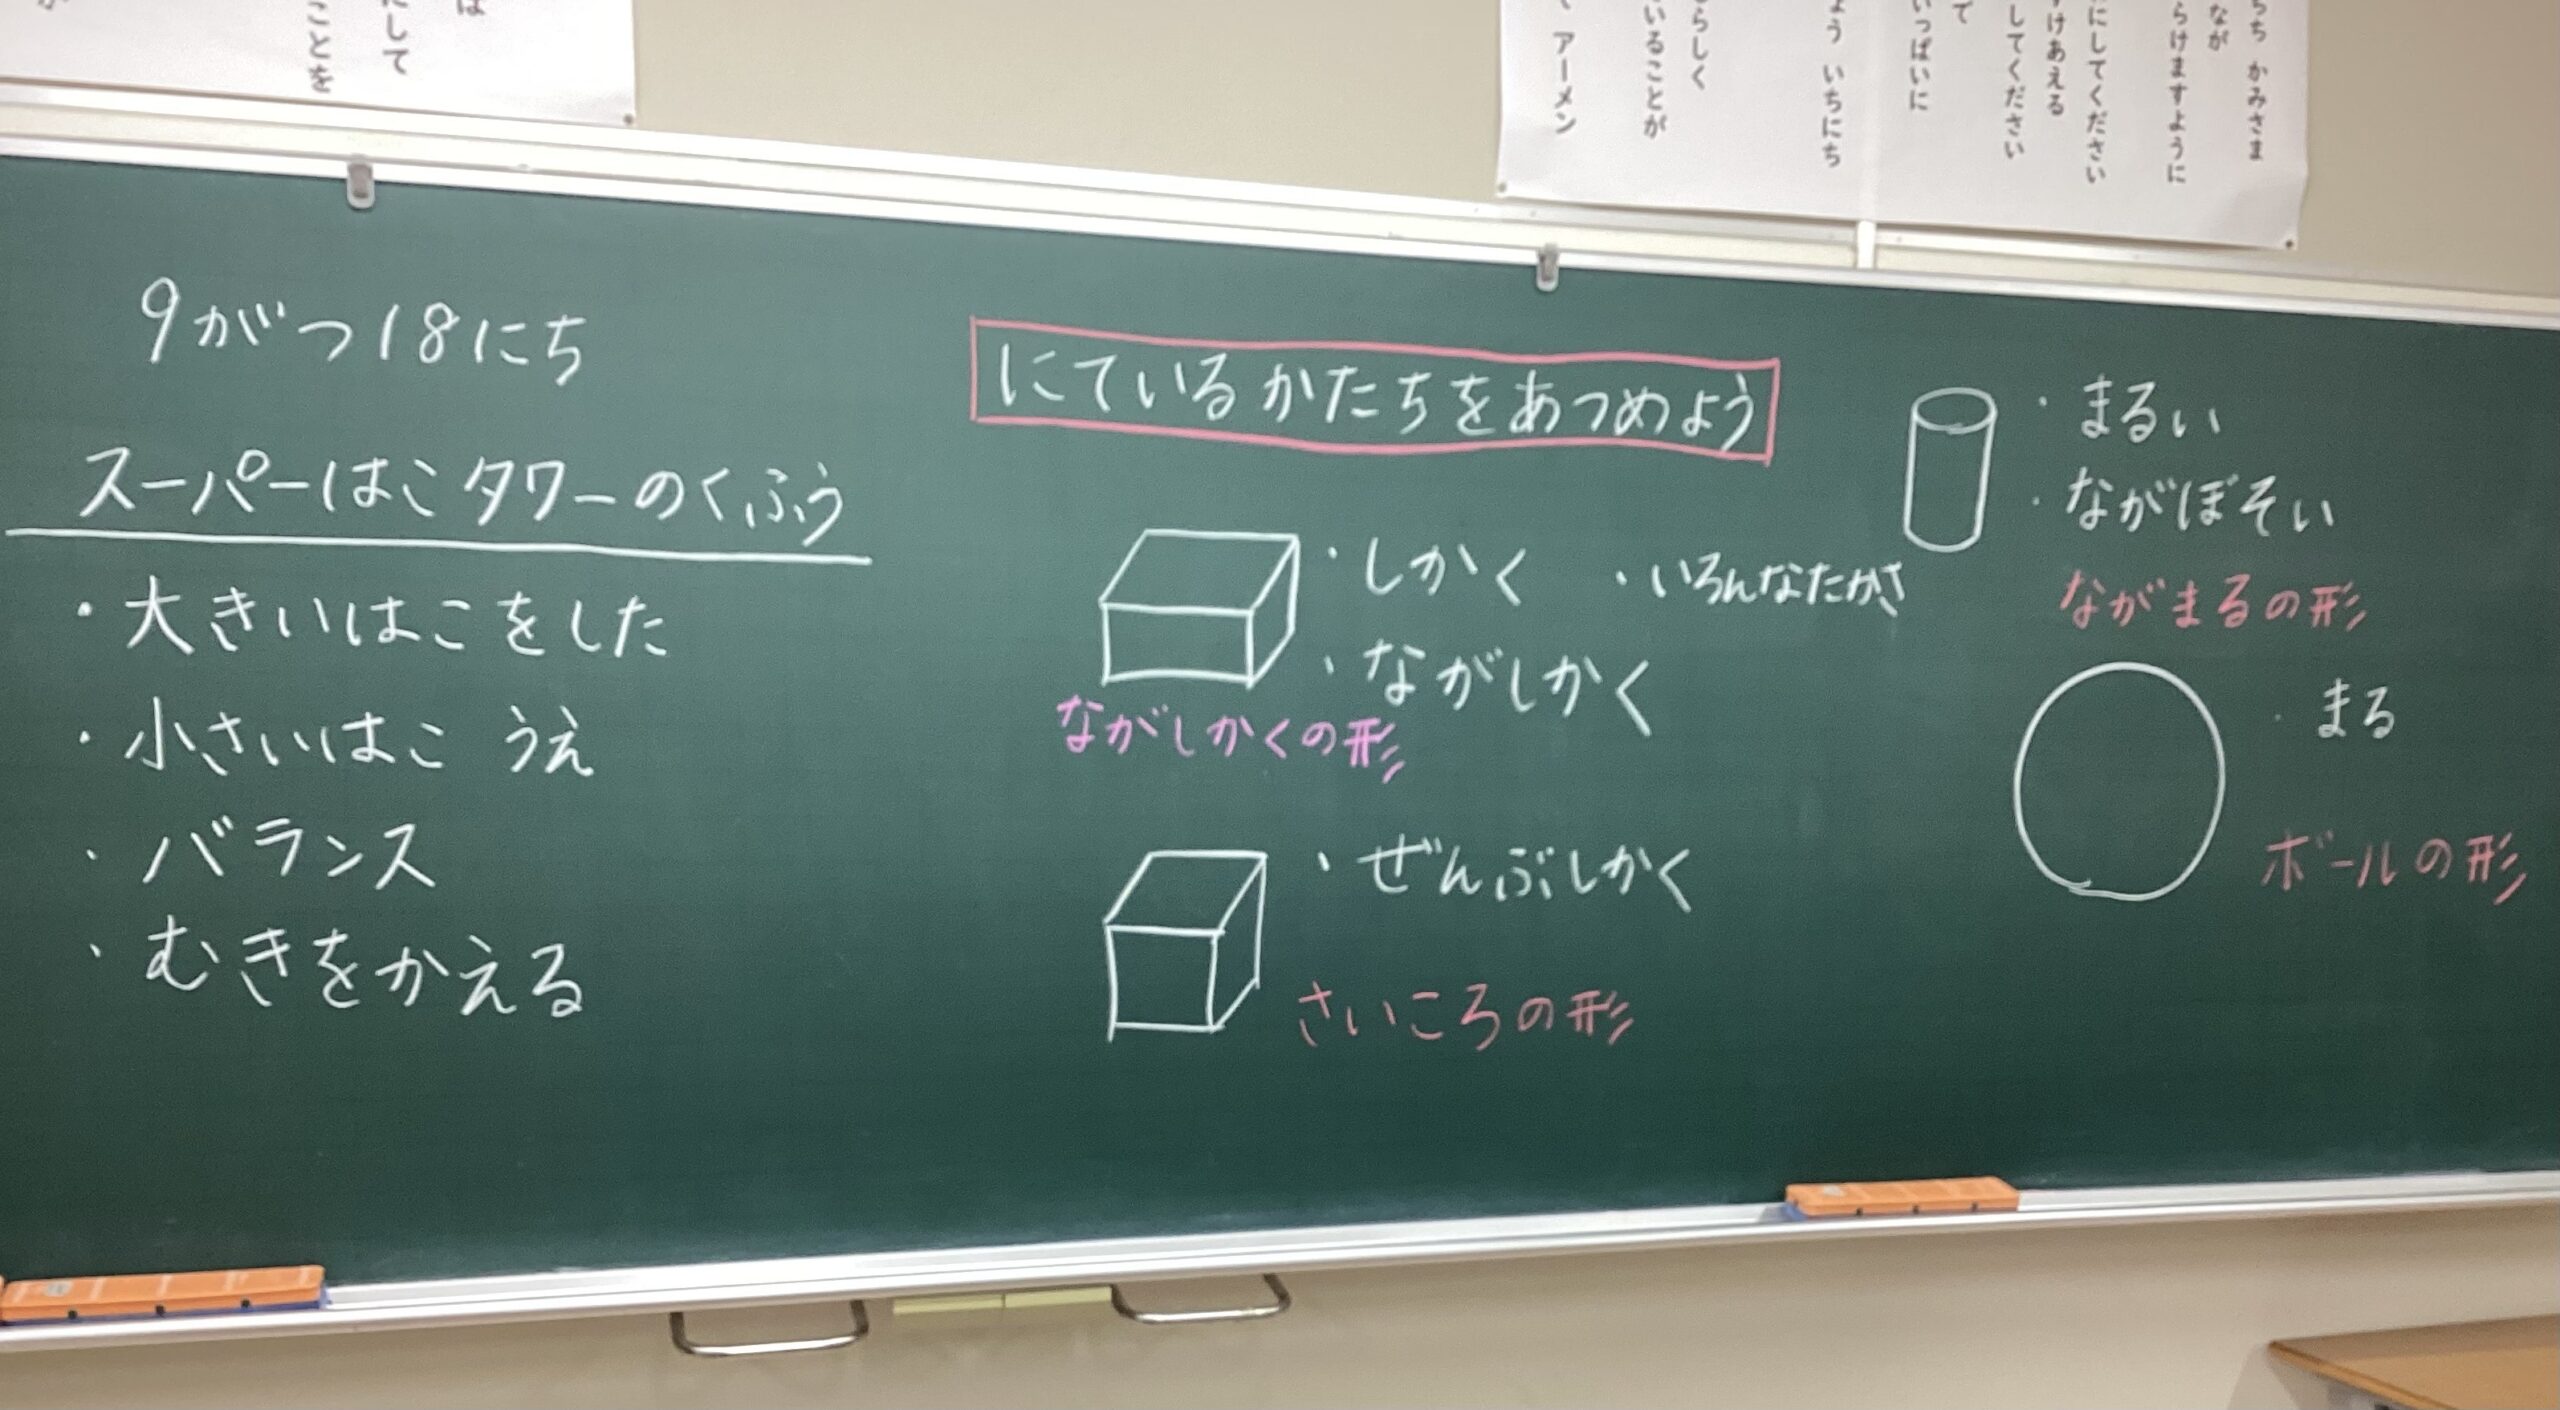 は
にして
ことを
ちち かみさま
なが
らけますように
にしてください
すけあえる
してください
で
いっぱいに
ょう いちにち
らしく
いることが
アーメン
9がつ18にち
スーパーはこタワーのくふう
・大きいはこをした
・小さいはこ うえ
・バランス
・むきをかえる
にているかたちをあつめよう
・しかく ・いろんなたかさ
・ながしかく
ながしかくの形
・ぜんぶしかく
さいころの形
・まるい
・ながぼそい
ながまるの形
・まる
ボールの形